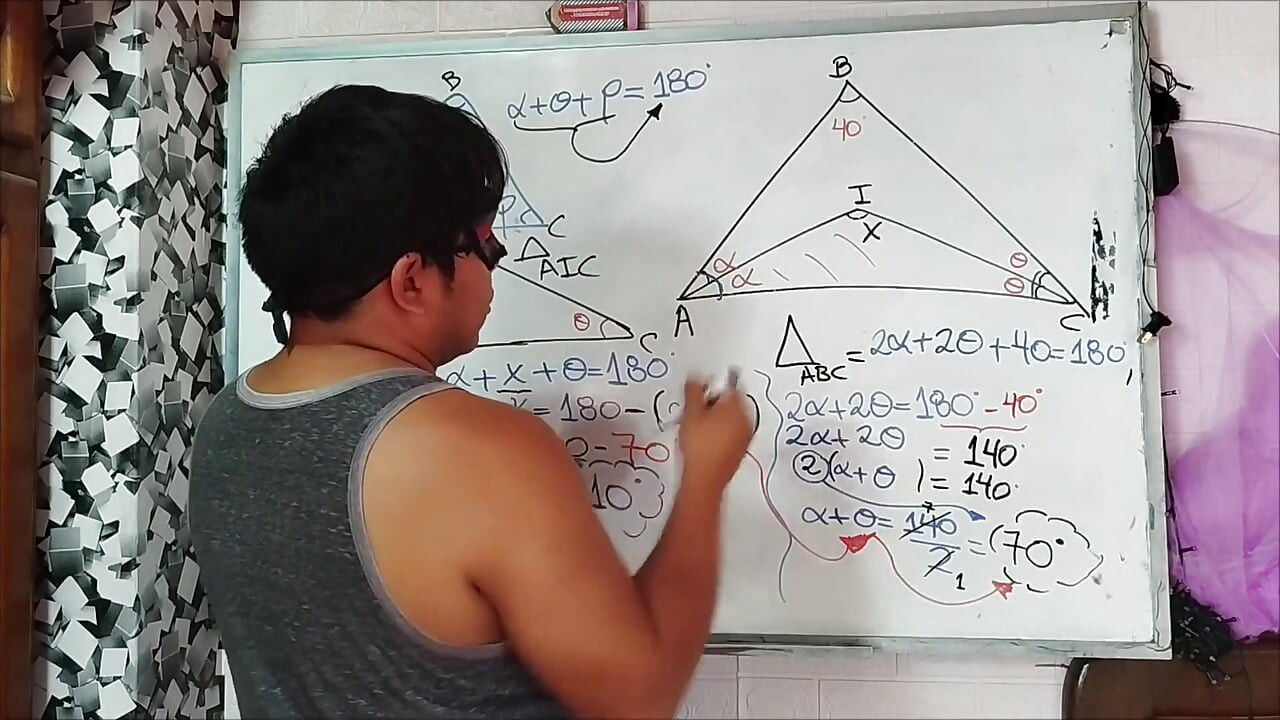 B
α+θ+ρ=180°
ρ
C
△AIC
θ
C
α+x+θ=180°
=180-(
-70
10°
B
40°
I
X
α
α
θ
θ
A
C
△ABC = 2α+2θ+40=180°,
2α+2θ=180°-40°
2α+2θ = 140°
2(α+θ )= 140°
α+θ= 140/2 = 70°
7
1